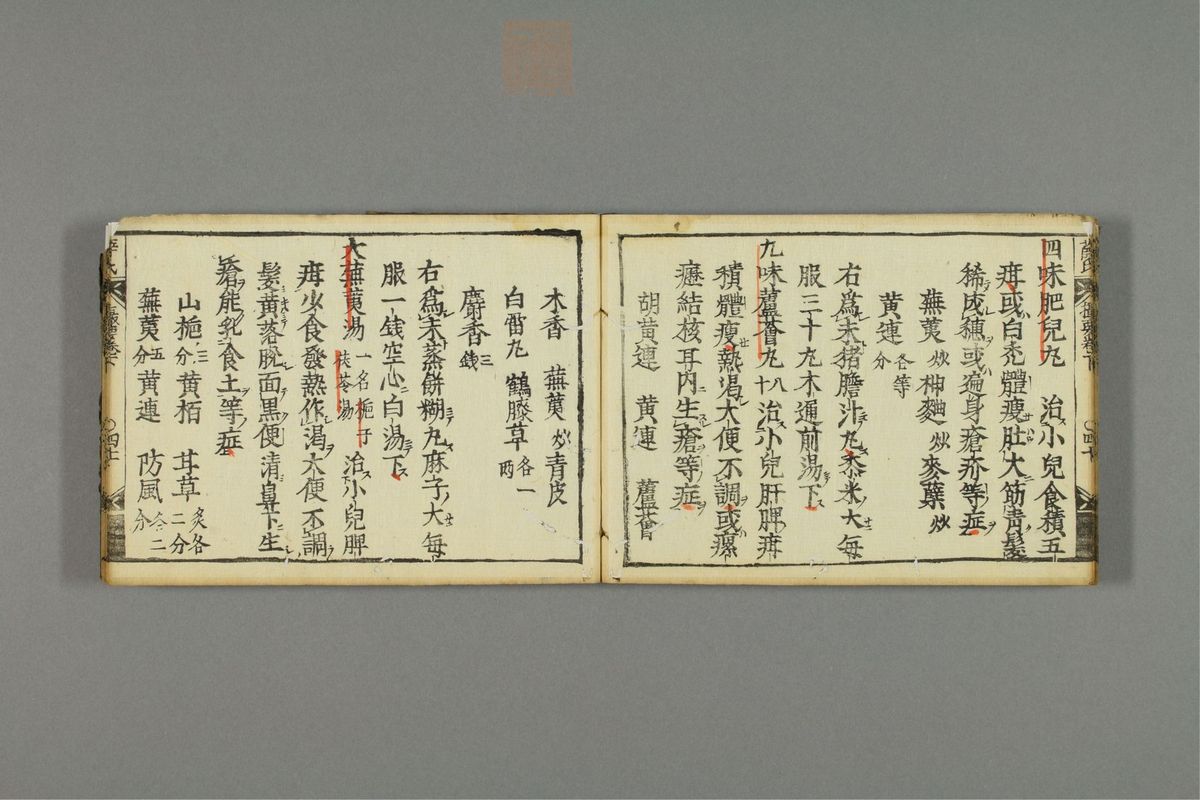 四味肥兒丸 治小兒食積五
疳或白禿體瘦肚大筋青髮
稀成穗或遍身瘡疥等症
蕪荑炒神麯炒麥蘖炒
黄連各等分
右爲末猪膽汁丸黍米大每
服三十丸木通煎湯下
九味蘆薈丸 八十 治小兒肝脾疳
積體瘦熱渴大便不調或瘰
癧結核耳内生瘡等症
胡黄連 黄連 蘆薈
木香 蕪荑炒 青皮
白雷丸 鶴膝草各一兩
麝香三錢
右爲末蒸餅糊丸麻子大每
服一錢空心白湯下
大蕪荑湯 一名梔子茯苓湯 治小兒脾
疳少食發熱作渴大便不調
髮黄落脱面黒便清鼻下生
瘡能乳食土等症
山梔三分 黄栢 甘草炙各二分
蕪荑五分 黄連 防風各二分